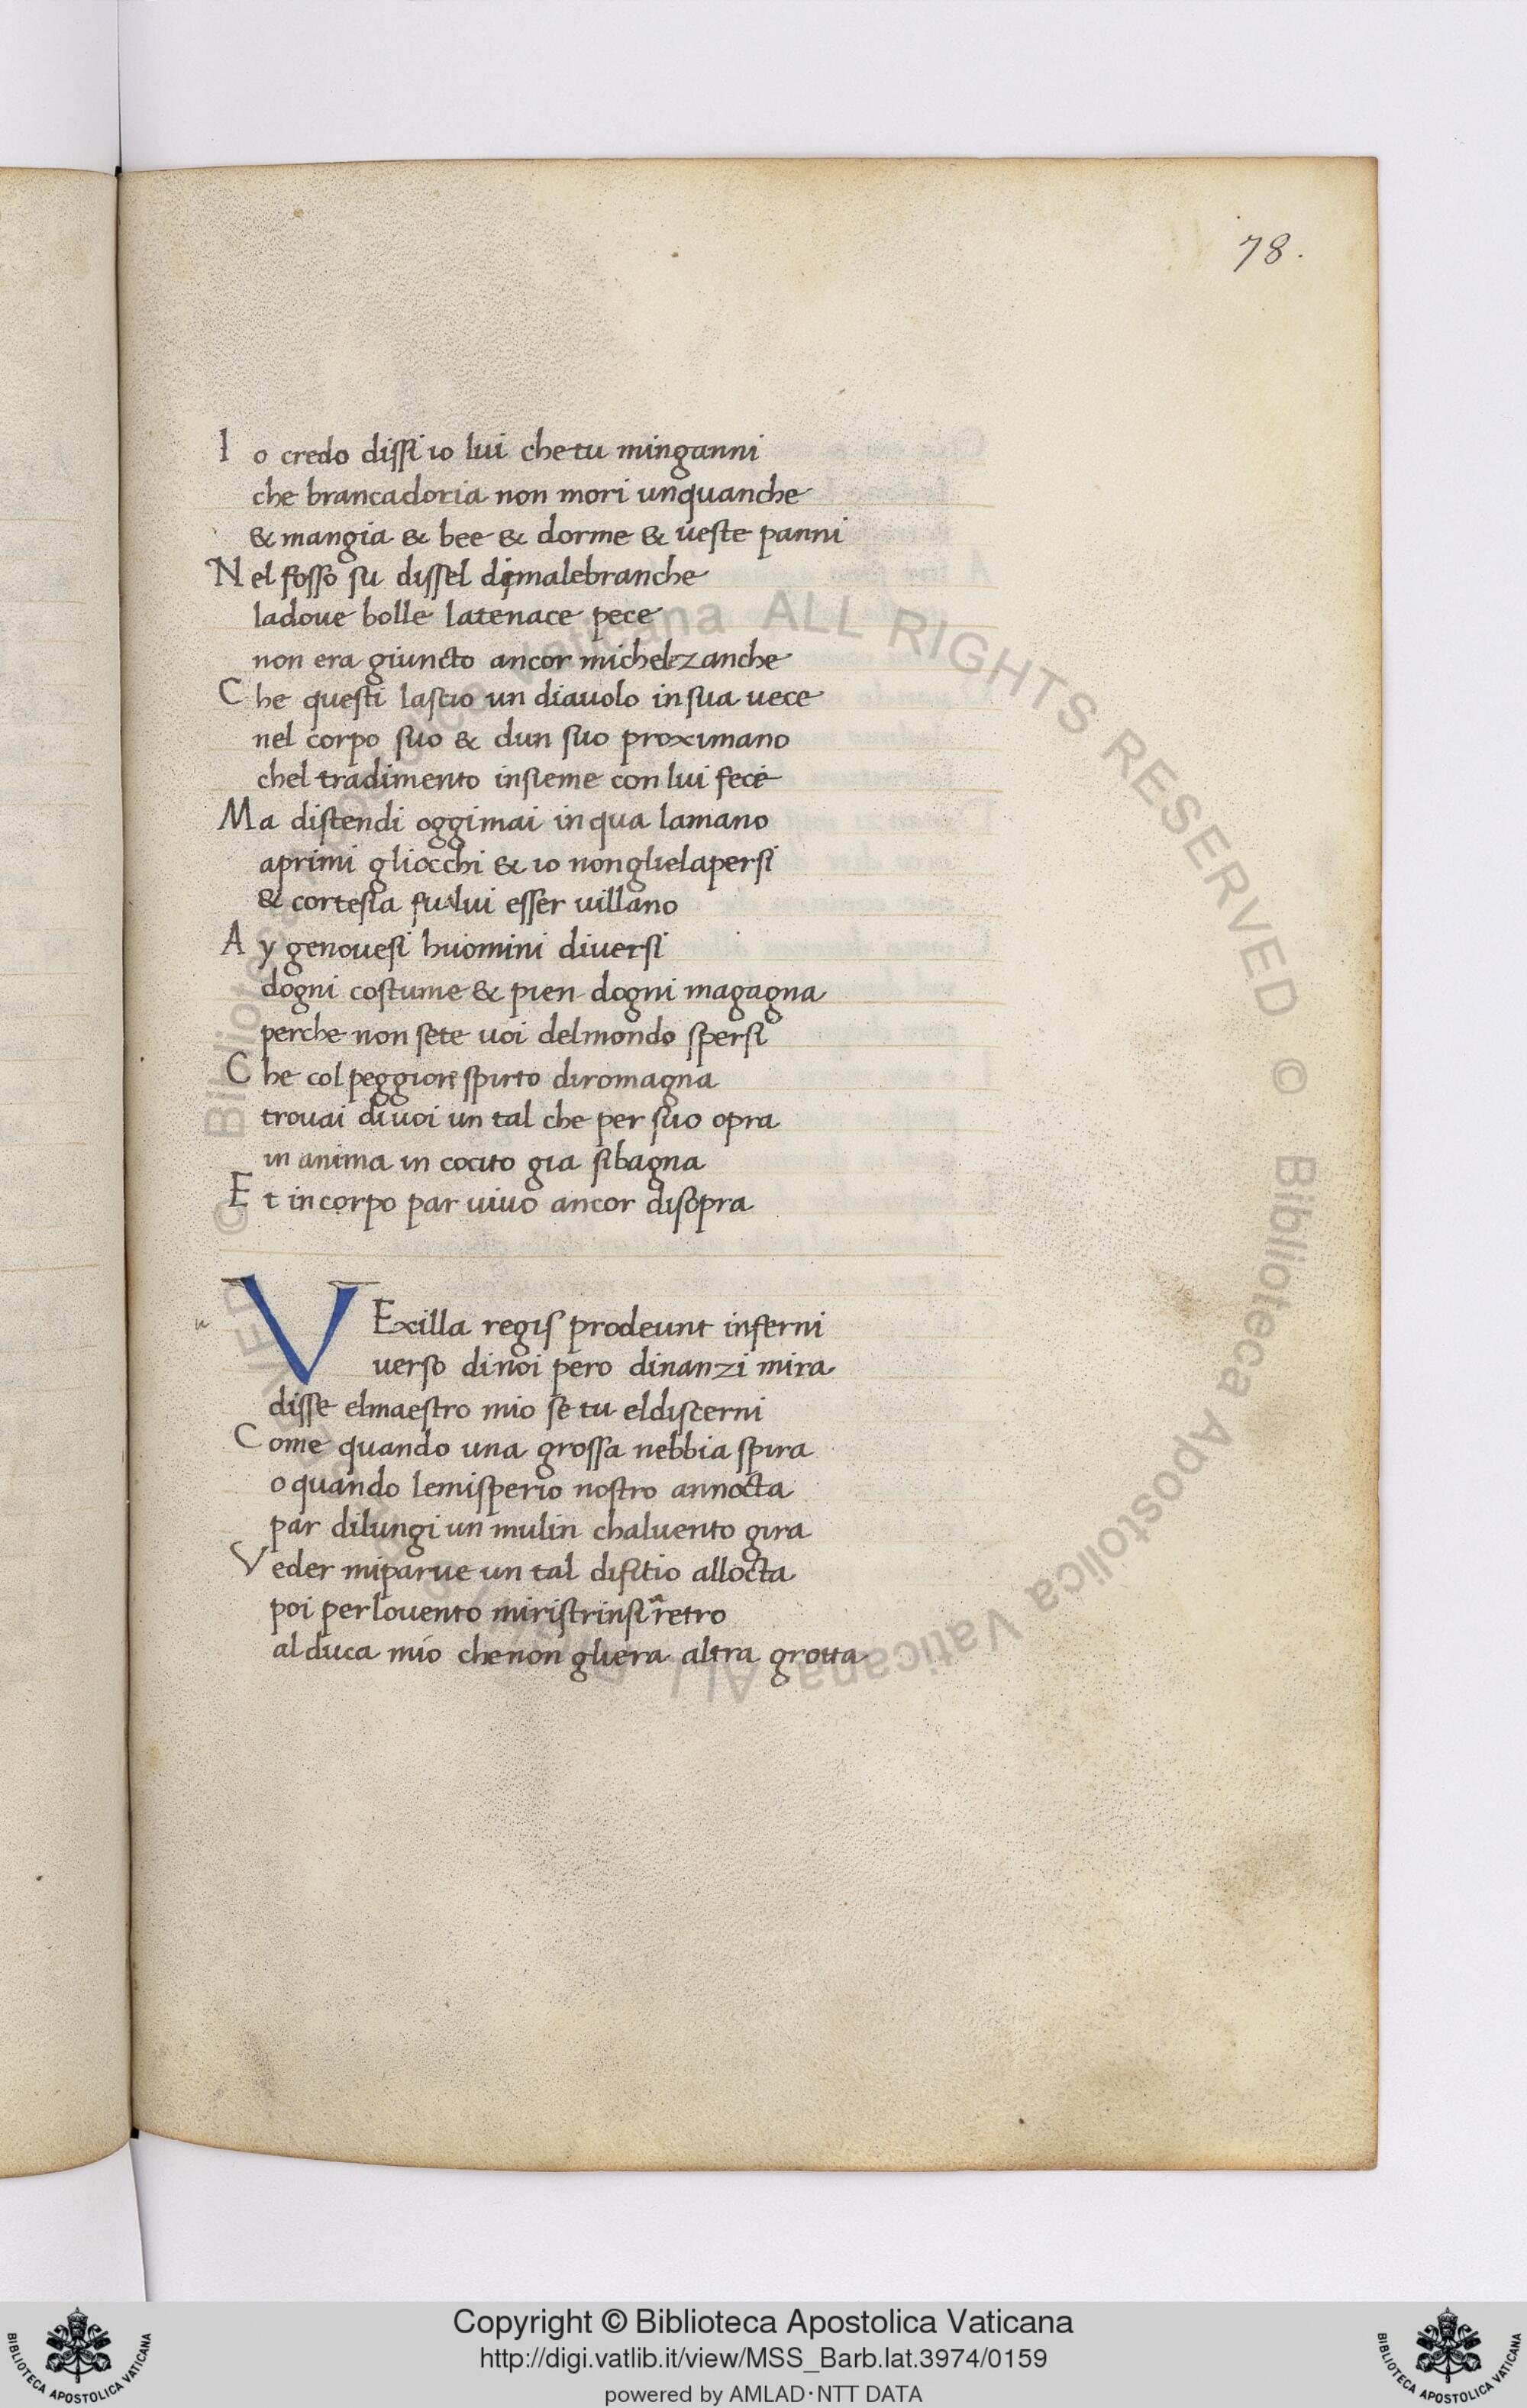 78.
Io credo dissi io lui che tu minganni
che brancadoria non mori unquanche
& mangia & bee & dorme & ueste panni
Nel fosso su dissel di malebranche
ladoue bolle latenace pece
non era giuncto ancor michelezanche
Che questi lascio un diauolo insua uece
nel corpo suo & dun suo proximano
chel tradimento insieme con lui fece
Ma distendi oggimai inqua lamano
aprimi gliocchi & io nonglielapersi
& cortesia fu lui esser uillano
Ay genouesi huomini diuersi
dogni costume & pien dogni magagna
perche non sete uoi delmondo spersi
Che col peggiore spirto diromagna
trouai diuoi un tal che per suo opra
in anima in cocito gia sibagna
Et incorpo par uiuo ancor disopra
u
VExilla regis prodeunt inferni
uerso dinoi pero dinanzi mira
disse elmaestro mio se tu eldiscerni
Come quando una grossa nebbia spira
o quando lemisperio nostro annocta
par dilungi un mulin chaluento gira
Veder miparue un tal difitio allocta
poi perlouento miristrinsi retro
al duca mio chenon gliera altra grotta
Copyright © Biblioteca Apostolica Vaticana
http://digi.vatlib.it/view/MSS_Barb.lat.3974/0159
powered by AMLAD·NTT DATA
BIBLIOTECA APOSTOLICA VATICANA
BIBLIOTECA APOSTOLICA VATICANA